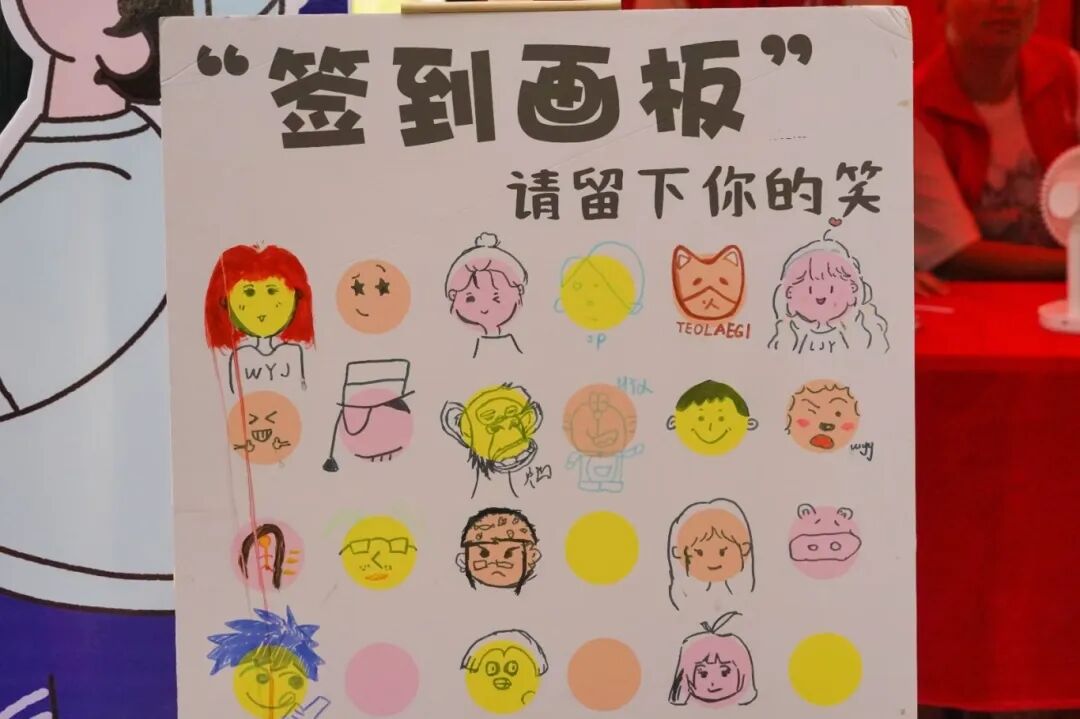 “签到画板”
请留下你的笑
TEOLAEGI
LJY
WYJ
wyy